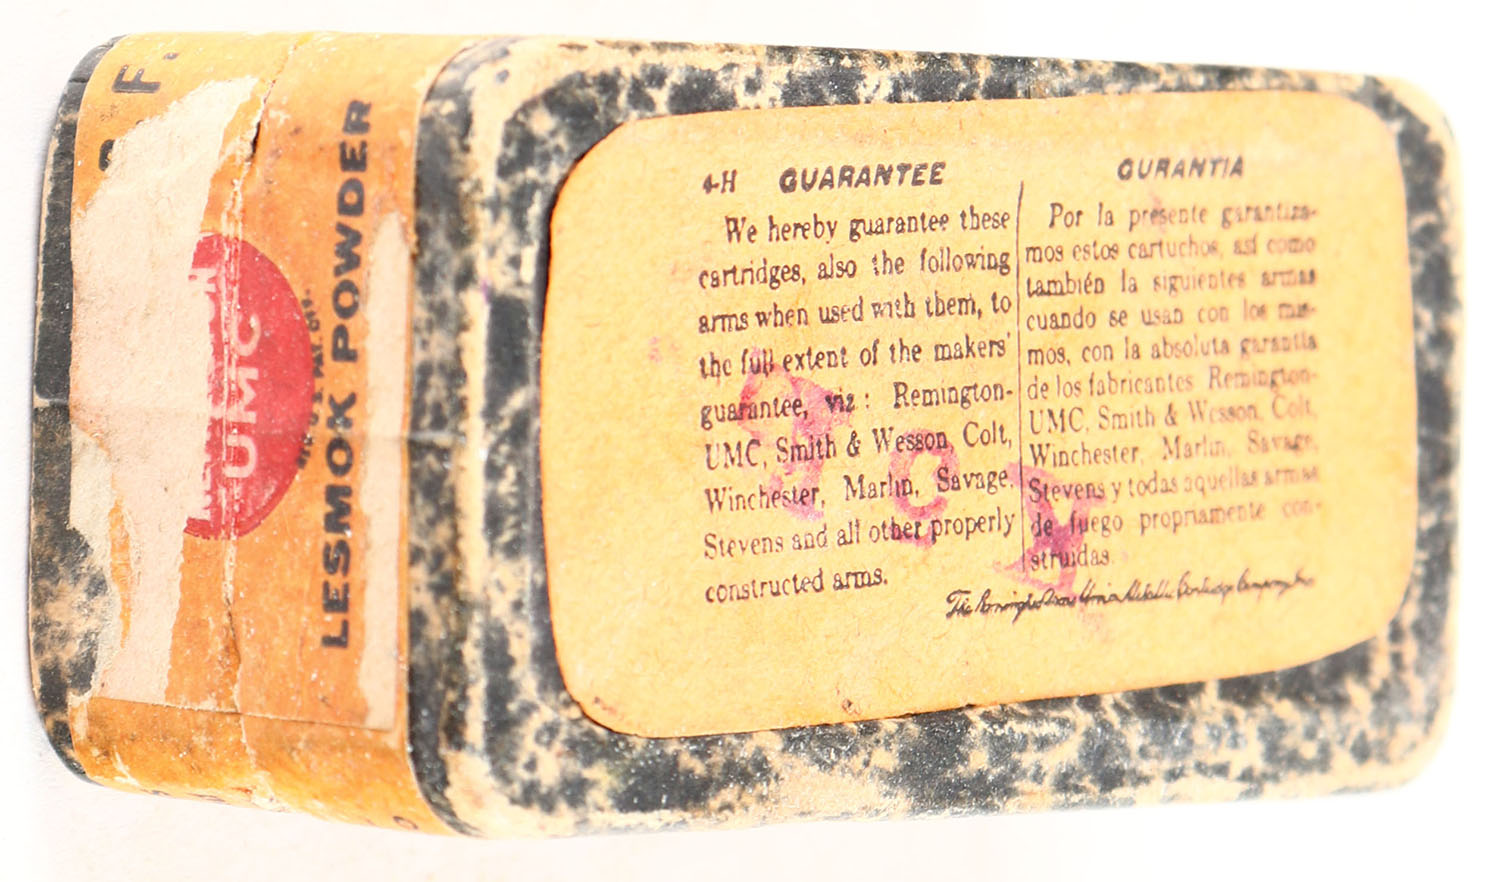 F.
UMC
LESMOK POWDER
4-H GUARANTEE
We hereby guarantee these
cartridges, also the following
arms when used with them, to
the full extent of the makers'
guarantee, viz: Remington-
UMC, Smith & Wesson, Colt,
Winchester, Marlin, Savage,
Stevens and all other properly
constructed arms.
GURANTIA
Por la presente garantiza-
mos estos cartuchos, así como
también la siguientes armas
cuando se usan con los mis-
mos, con la absoluta garantia
de los fabricantes Remington-
UMC, Smith & Wesson, Colt,
Winchester, Marlin, Savage,
Stevens y todas aquellas armas
de fuego propriamente con-
struidas.
The Remington Arms Union Metallic Cartridge Company Inc